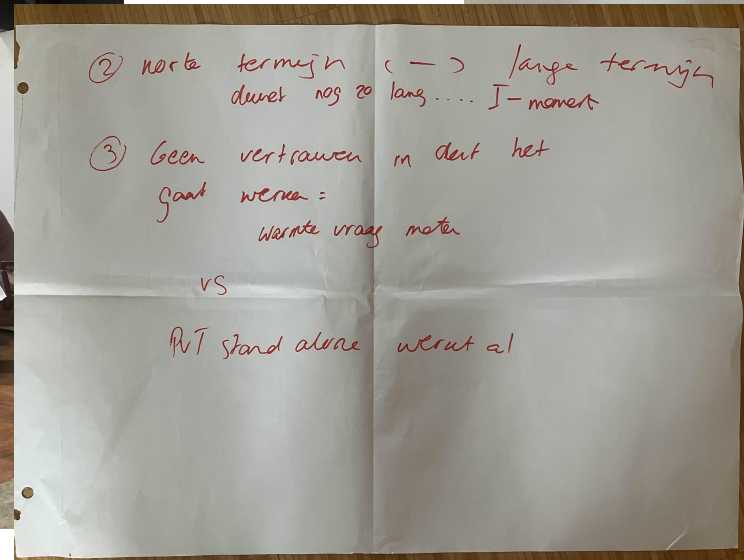 ② korte termijn <—> lange termijn
duurt nog zo lang.... I-moment
③ Geen vertrouwen in dat het
gaat werken =
warmte vraag meten
vs
PVT stand alone werkt al